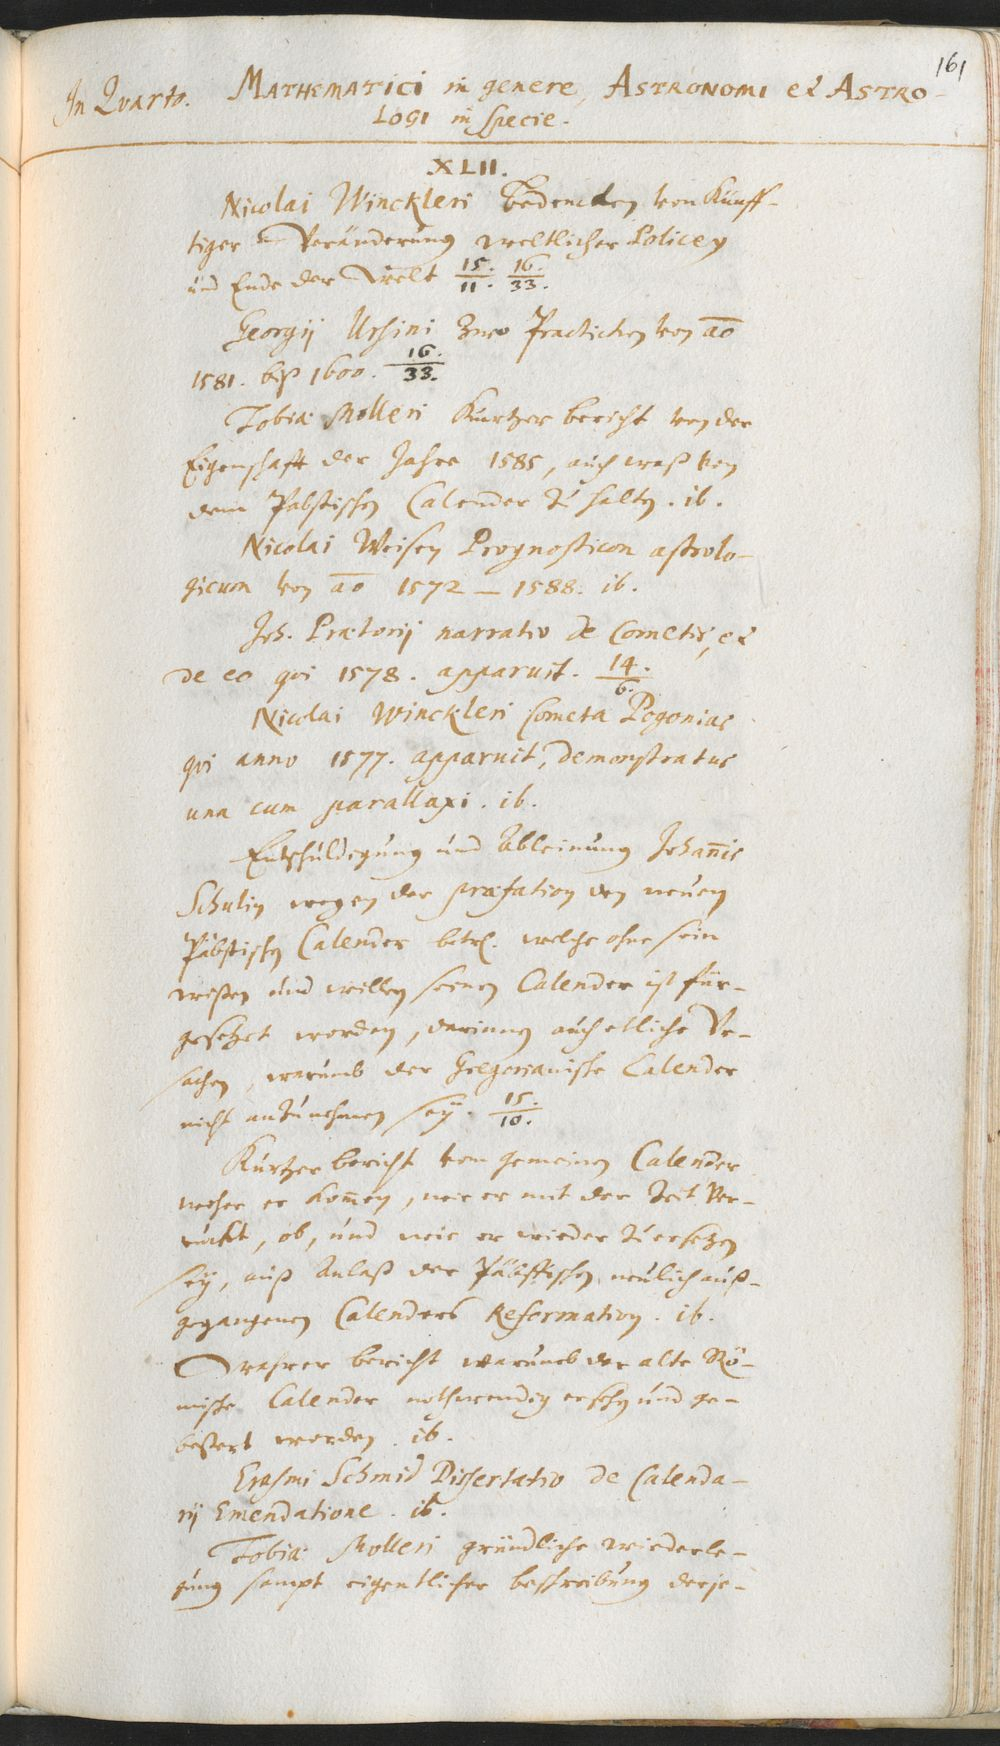 161
In Quarto. MATHEMATICI in genere, ASTRONOMI et ASTRO-
LOGI in specie.
XLII.
Nicolai Winckleri Bedencken von Künff-
tiger Veränderung weltlicher Policey
und Ende der Welt 15./11. 16./33.
Georgij Ursini Zwo Practicken von ao
1581. biß 1600. 16./33.
Tobiæ Molleri Kurtzer bericht von der
Eigenschafft der Jahre 1585, auch waß von
dem Pabstischen Calender zu halten. ib.
Nicolai Weisen Prognosticon astrolo-
gicum von ao 1572 – 1588. ib.
Joh. Prætorij narratio de Cometis, et
de eo qvi 1578. apparuit. 14./6.
Nicolai Winckleri Cometa Pogonias
qvi anno 1577. apparuit, demonstratus
una cum parallaxi. ib.
Entschuldigung und Ableinung Johannis
Schulin wegen der præfation den neuen
Päbstischen Calender betr. welche ohne sein
wißen und willen seinen Calender ist für-
gesetzet worden, darinnen auch etliche Vr-
sachen, warumb der Gregorianische Calender
nicht anzunehmen sey. 15./10.
Kurtzer bericht vom gemeinen Calender
woher er kommen, wie er mit der Zeit ver-
ruckt, ob, und wie er wieder zu ersetzen
sey, auß Anlaß der Päbstischen neulich auß-
gegangenen Calenders Reformation. ib.
Wahrer bericht warumb der alte Rö-
mische Calender nothwendig ersehen und ge-
beßert worden. ib.
Erasmi Schmid Dissertatio de Calenda-
rij Emendatione. ib.
Tobiæ Molleri gründliche wiederle-
gung sampt eigentlicher beschreibung derje-